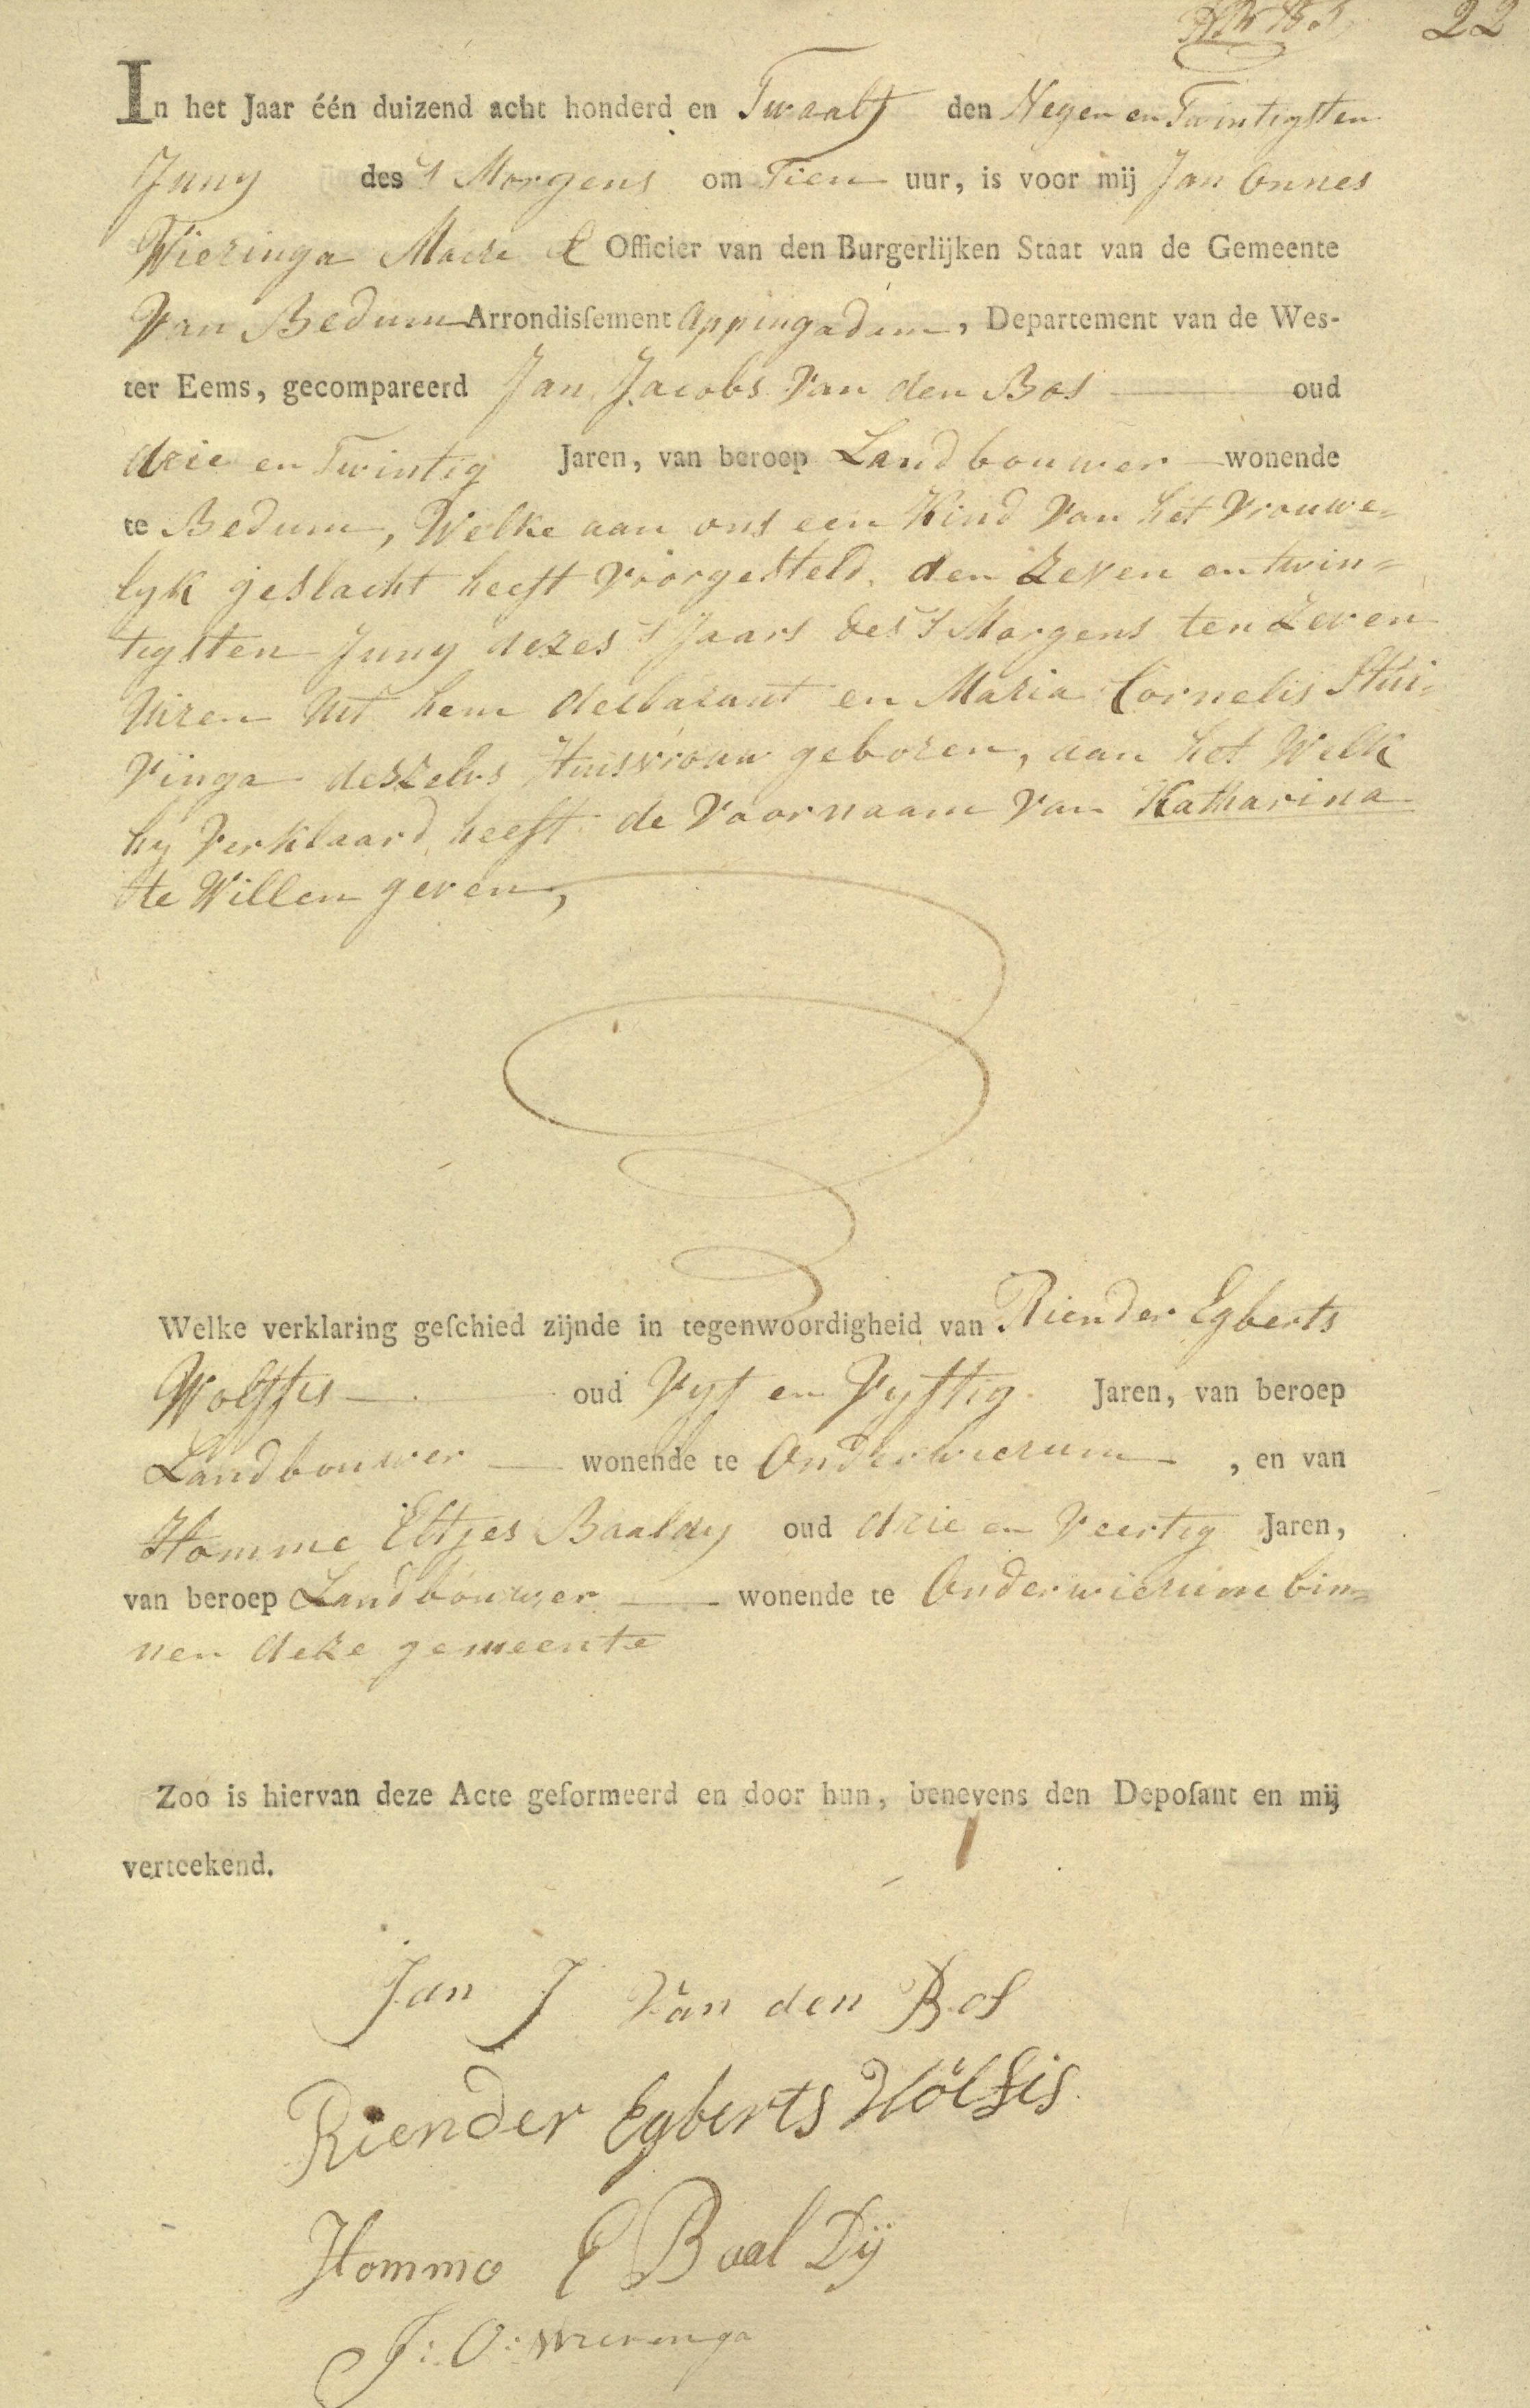 22
In het Jaar één duizend acht honderd en Twaalf den Negen en Twintigsten
Juny des 's Morgens om Tien uur, is voor mij Jan Onnes
Wieringa Maire & Officier van den Burgerlijken Staat van de Gemeente
Van Bedum Arrondisſement Appingadam, Departement van de Wes-
ter Eems, gecompareerd Jan Jacobs Van den Bos oud
drie en Twintig Jaren, van beroep Landbouwer wonende
te Bedum, Welke aan ons een Kind Van het Vrouwe=
lyk geslacht heeft Voorgesteld, den Zeven en twin=
tigsten Juny dezes 's Jaars des 's Morgens ten Zeven
Uren Uit hem declarant en Maria Cornelis Stui=
Vinga deszelvs Huisvrouw geboren, aan het Welk
hy Verklaard heeft de Voornaam Van Katharina
te Willen geven,
Welke verklaring geſchied zijnde in tegenwoordigheid van Riender Egberts
Wolffes oud Vyf en Vyftig Jaren, van beroep
Landbouwer wonende te Onderwierum, en van
Homme Eltjes Baaldy oud drie en Veertig Jaren,
van beroep Landbouwer wonende te Onderwierum bin=
nen deze gemeente
Zoo is hiervan deze Acte geformeerd en door hun, benevens den Depoſant en mij
verteekend.
Jan J Van den Bos
Riender Egberts Wölfis
Hommo E Baal Dÿ
J: O: Wieringa